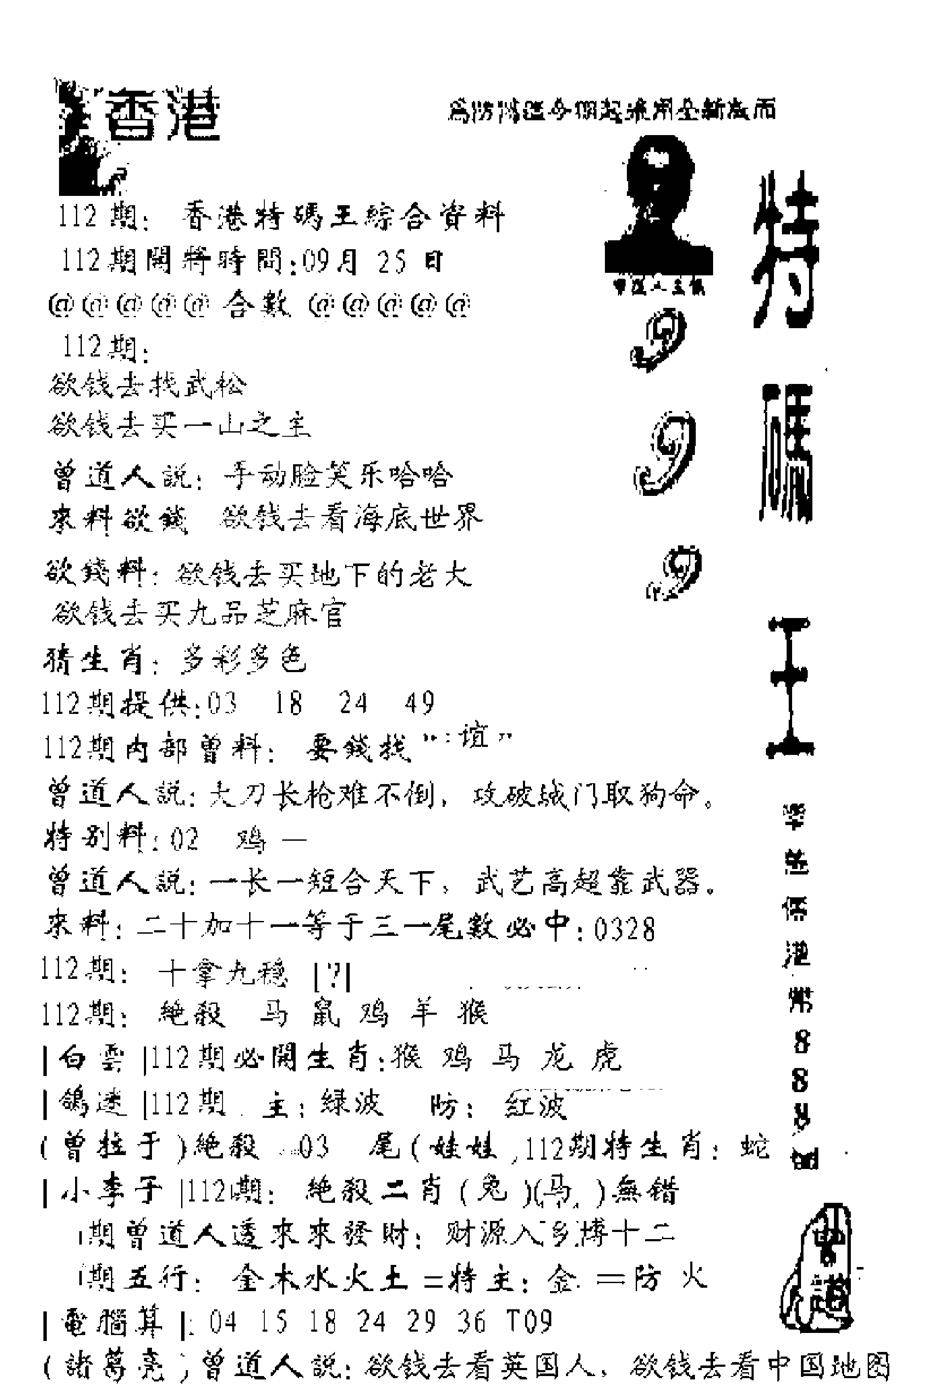 香港
為防 今期起採用全新版面
112期: 香港特碼王綜合資料
112期開將時間:09月 25日
@@@@@合數 @@@@@
112期:
欲钱去找武松
欲钱去买一山之主
曾道人説: 手动脸笑乐哈哈
來料欲錢 欲钱去看海底世界
欲錢料: 欲钱去买地下的老大
欲钱去买九品芝麻官
猜生肖: 多彩多色
112期提供:03 18 24 49
112期内部曾料: 要錢找":谊"
曾道人説:大刀长枪难不倒, 攻破城门取狗命。
特别料:02 鸡一
曾道人説:一长一短合天下, 武艺高超靠武器。
來料:二十加十一等于三一尾數必中:0328
112期: 十拿九穩 |?|
112期: 絶殺 马 鼠 鸡 羊 猴
|白雲|112期必開生肖:猴 鸡 马 龙 虎
| |112期 主:緑波 防: 红波
(曾 于)絶殺 03 尾(娃娃 112期特生肖: 蛇
|小李子|112期: 絶殺二肖(兔)(马)無错
期曾道人透來來發財: 财源入 博十二
期五行: 金木水火土=特主:金 =防 火
|電腦算|:04 15 18 24 29 36 T09
(諸葛亮)曾道人説:欲钱去看英国人, 欲钱去看中国地图
特
碼
王
9
9
9
港
幣
8
8
8
曾道